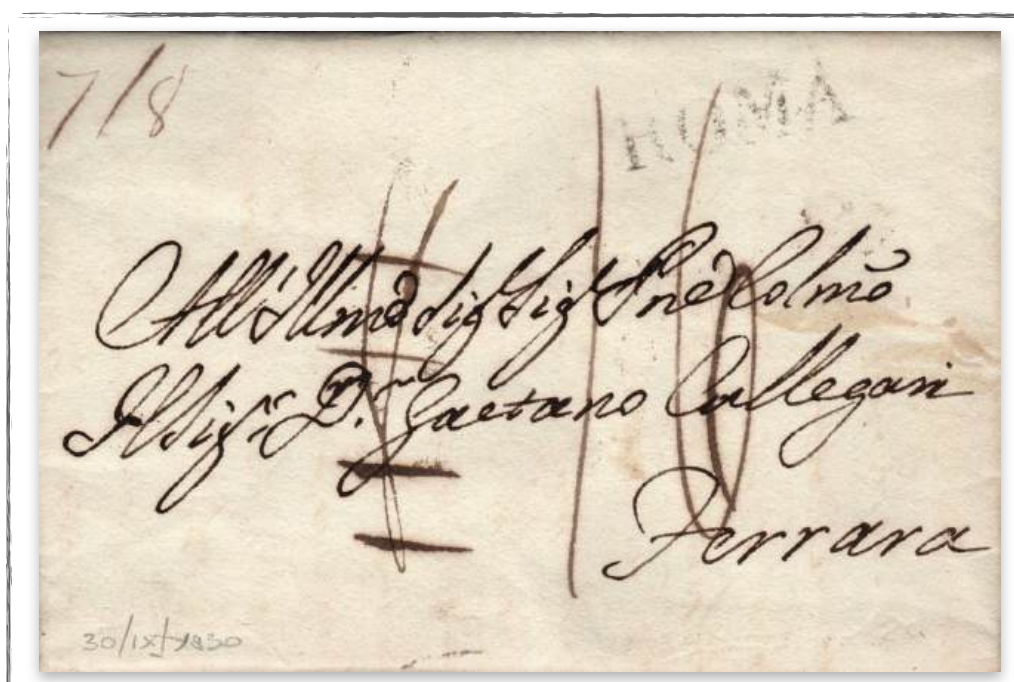 7/8
ROMA
16
All'Illmo Sig Sig Pne Colmo
Il Sig:r D.r Gaetano Callegari
Ferrara
30/IX/1830